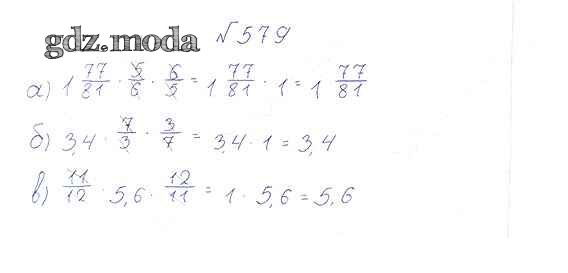 gdz.moda №579
а) 1 77/81 · 5/6 · 6/5 = 1 77/81 · 1 = 1 77/81
б) 3,4 · 7/3 · 3/7 = 3,4 · 1 = 3,4
в) 11/12 · 5,6 · 12/11 = 1 · 5,6 = 5,6